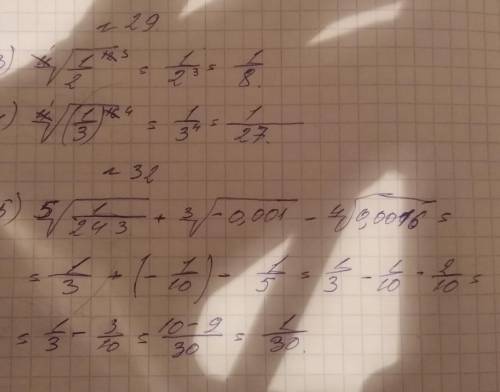 № 29.
3) ⁴√(1/2)¹²³ = 1/2³ = 1/8.
4) ⁴√(1/3)¹⁶⁴ = 1/3⁴ = 1/27.
№ 32
5) ⁵√1/243 + ³√-0,001 - ⁴√0,0016 =
= 1/3 + (- 1/10) - 1/5 = 1/3 - 1/10 - 2/10 =
= 1/3 - 3/10 = 10-9/30 = 1/30.